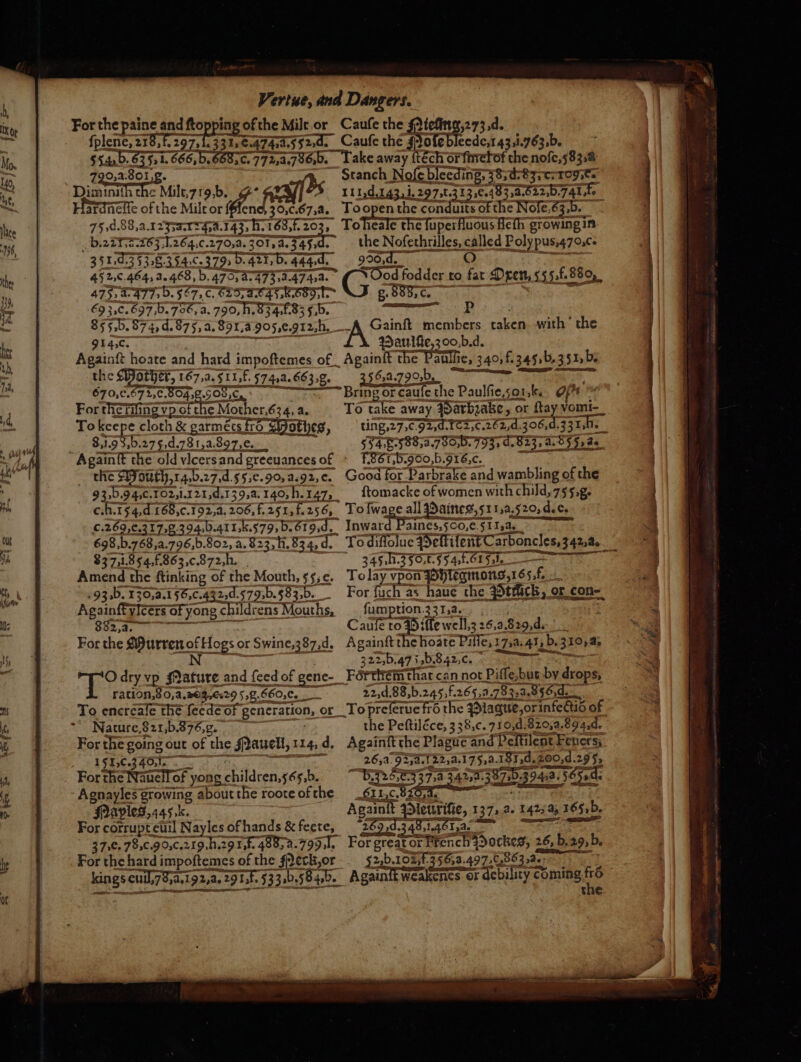 Vertue, and Dangers.
For the paine and stopping of the Milt or
splene, 218,f. 297,l. 331,e.474,a.552,d.
554,b. 635,l. 666,b.668,c. 772,a,786,b.
790,a.801,g.
Diminish the Milt,719,b.
Hardnesse of the Milt or splene, 30,c.67,a.
75,d.88,a.123,a.124,a.143, h.168,f. 203,
b.221,c.263,l.264,c.270,a. 301, a.345,d.
351,d.353,g.354,c.379, b.421, b. 444,d.
452,c.464, a.468, b.470, a.473,a.474,a.
475, a.477,b. 567, c. 625,a.645,k.689,l.
693,c.697,b.706, a. 790, h.834,f.835,b.
855,b. 874, d.875, a. 891,a 905,e.912,h.
914,c.
Against hoate and hard impostemes of
the Mother, 167,a. 511,f. 574,a.663,g.
670,c.672,c.804,g.908,c.
For the rising vp of the Mother,634, a.
To keepe cloth & garmēts frō Mothes,
8,l.98,b.275,d.781,a.897,e.
Against the old vlcers and greeuances of
the Mouth,14,b.27,d.55,c.90,a.92,c.
93,b.94,c.102,l.121,d,139,a. 140, h.147,
c.h.154,d 168,c.192,a. 206, f. 251, f.256,
c.269,c.317,g.394,b.411,k.579, b.619,d.
698,b.768,a.796,b.802, a. 823, h. 834, d.
837,l.854,f.863,c.872,h.
Amend the stinking of the Mouth, 55,c.
93,b. 130,a.156,c.432,d.579,b.583,b.
Against vlcers of yong childrens Mouths,
882,a.
For the Murren of Hogs or Swine,387,d.
N
TO dry vp Nature and seed of gene-
ration,80,a.295,g.660,c.
To encrease the seede of generation, or
Nature,821,b.876,g.
For the going out of the Nauell, 114, d.
151,c.340,l.
For the Nauell of yong children,565,b.
Agnayles growing about the roote of the
Nayles,445,k.
For corrupt euil Nayles of hands & feete,
37,e. 78,c.90,c.219.h.291,f. 488, a.799,l.
For the hard impostemes of the Neck,or
kings euil,78,a,192,a. 291,f. 533,b.584,b.
Cause the Niesing,273,d.
Cause the Nose bleede,143,i.763,b.
Take away stēch or stinch of the nose,583,a
Stanch Nose bleeding, 38, d.83, c.109,e.
111,d.143, i. 297,l.313,e.483,a.622,b.741,f.
To open the conduits of the Nose,63,b.
To heale the superfluous flesh growing in
the Nosethrilles, called Polypus,470,c.
900,d.
O
OOd fodder to fat Oxen, 555,f. 880,
g.888,c.
P
Gainst members taken with the
Paulsie,300,b.d.
Against the Paulsie, 340, f. 345, b. 351, b.
356,a.790,b.
Bring or cause the Paulsie,501,k.
To take away Parbrake, or stay vomi-
ting,27,c.92,d.102,c.262,d.306,d.331,h.
554,g.588,a.780,b.793, d.823, a.855,a.
f.861,b.900,b.916,c.
Good for Parbrake and wambling of the
stomacke of women with child, 755,g.
To swage all Paines,511,a.520, d.e.
Inward Paines,500,e.511,a.
To dissolue Pestilent Carboncles,342,a.
345,h.350,f.554,f.615,l.
To lay vpon Phlegmons,165,f.
For such as haue the Ptisick, or con-
sumption.331,a.
Cause to Pisse well,3 26,a.829,d.
Against the hoate Pisse, 17,a. 41, b. 310, a,
322,b.475,b.842,c.
For them that can not Pisse,but by drops,
22,d.88,b.245,f.265,a.783,a.856,d.
To preserue frō the Plague,or infectiō of
the Pestilēce, 338,c. 710,d.820,a.894,d.
Against the Plague and Pestilent Feuers,
26,a 92,a.122,a.175,a.181,d.200,d.295,
b.326,e.337,a 342,a.387,b.394,a. 565,d.
611,c.820,a.
Against Pleurisie, 137, a. 142, a, 165,b.
269,d.348,l.461,a.
For great or French Pockes, 26, b.29, b.
52,b.102,f.356,a.497,c.863,a.
Against weakenes or debility coming frō
the